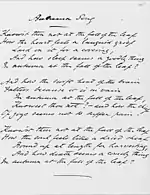 Autumn Song
Know'st thou not at the fall of the leaf
How the heart feels a languid grief
Laid on it for a covering,
And how sleep seems a goodly thing
In Autumn at the fall of the leaf?
And how the swift beat of the brain
Falters because it is in vain,
In Autumn at the fall of the leaf
Knowest thou not? and how the chief
Of joys seems not to suffer pain?
Know'st thou not at the fall of the leaf
How the soul feels like a dried sheaf
Bound up at length for harvesting,
And how death seems a comely thing
In Autumn at the fall of the leaf?